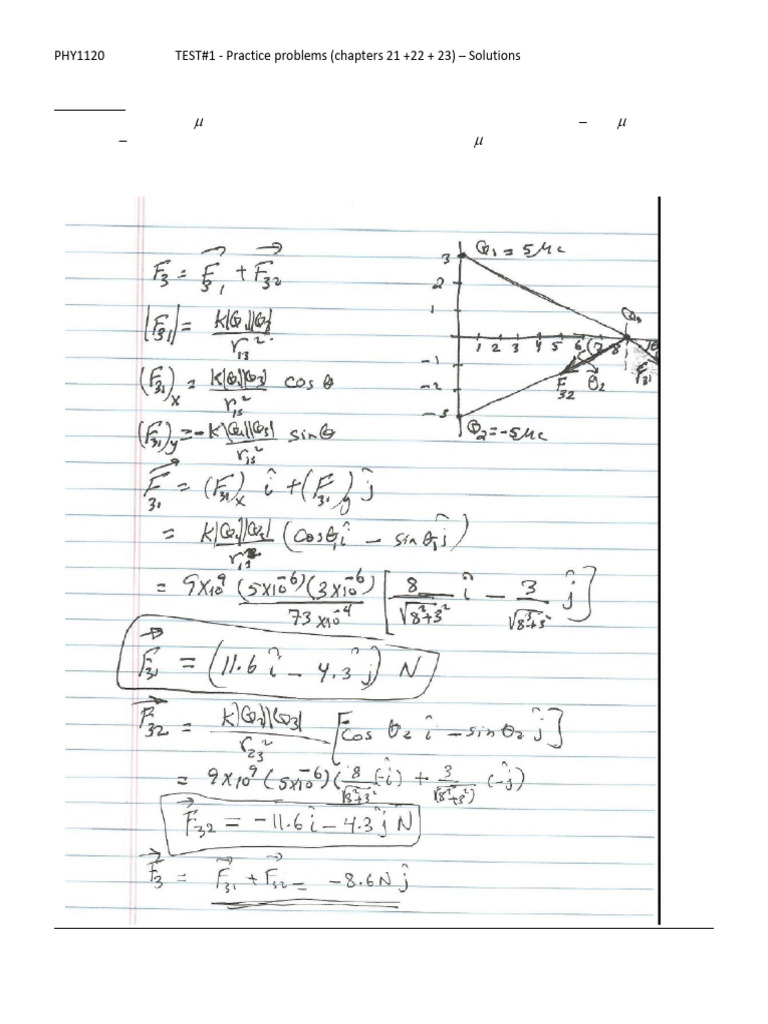 PHY1120 TEST#1 - Practice problems (chapters 21 +22 + 23) – Solutions
μ – μ
– μ
F₃ = F₃₁ + F₃₂
|F₃₁| = K|Q₁||Q₃| / r₁₃²
(F₃₁)x = K|Q₁||Q₃| / r₁₃² cos θ
(F₃₁)y = -K|Q₁||Q₃| / r₁₃² sin θ
F₃₁ = (F₃₁)x î + (F₃₁)y ĵ
= K|Q₁||Q₃| / r₁₃² (cosθ₁ î − sinθ₁ ĵ)
= 9×10⁹ (5×10⁻⁶)(3×10⁻⁶) / 73×10⁻⁴ [8/√8²+3² î − 3/√8²+3² ĵ]
F₃₁ = (11.6 î − 4.3 ĵ) N
F₃₂ = K|Q₂||Q₃| / r₂₃² [cos θ₂ î − sin θ₂ ĵ]
= 9×10⁹ (5×10⁻⁶) (8/√8²+3² (-î) + 3/√8²+3² (-ĵ)
F₃₂ = −11.6 î − 4.3 ĵ N
F₃ = F₃₁ + F₃₂ = −8.6 N ĵ
Q₁ = 5μc
3
2
1
Q₃
1 2 3 4 5 6 7 8 10
-1
F₃₂ θ₂ F₃₁
-2
-3
Q₂ = -5μc